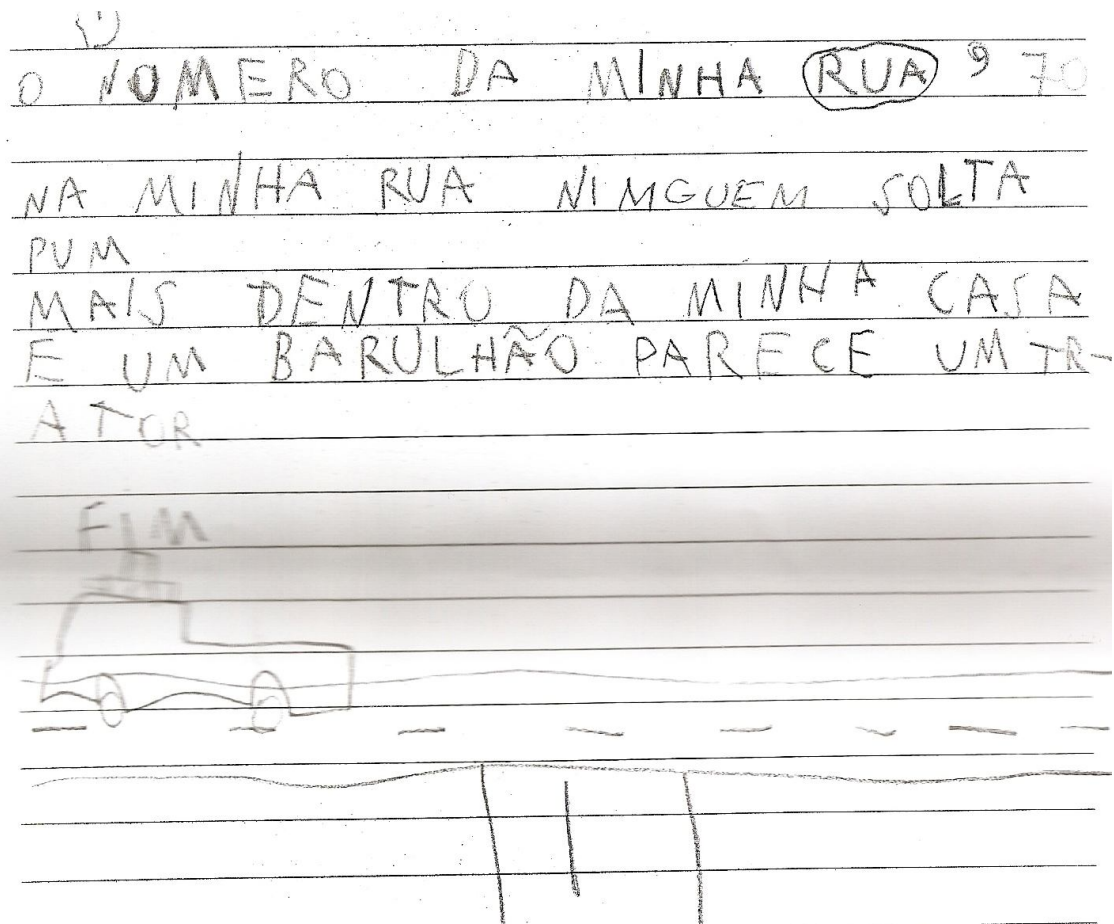 O NOMERO DA MINHA RUA 9 70
NA MINHA RUA NIMGUEM SOLTA
PUM
MAIS DENTRO DA MINHA CASA
E UM BARULHÃO PARECE UM TR-
ATOR
FIM